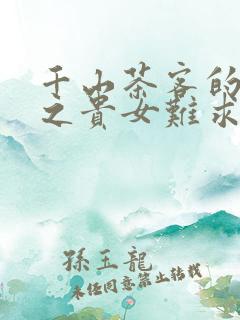 千山茶客的
之貴女難求
孫玉龍
未经同意禁止转载